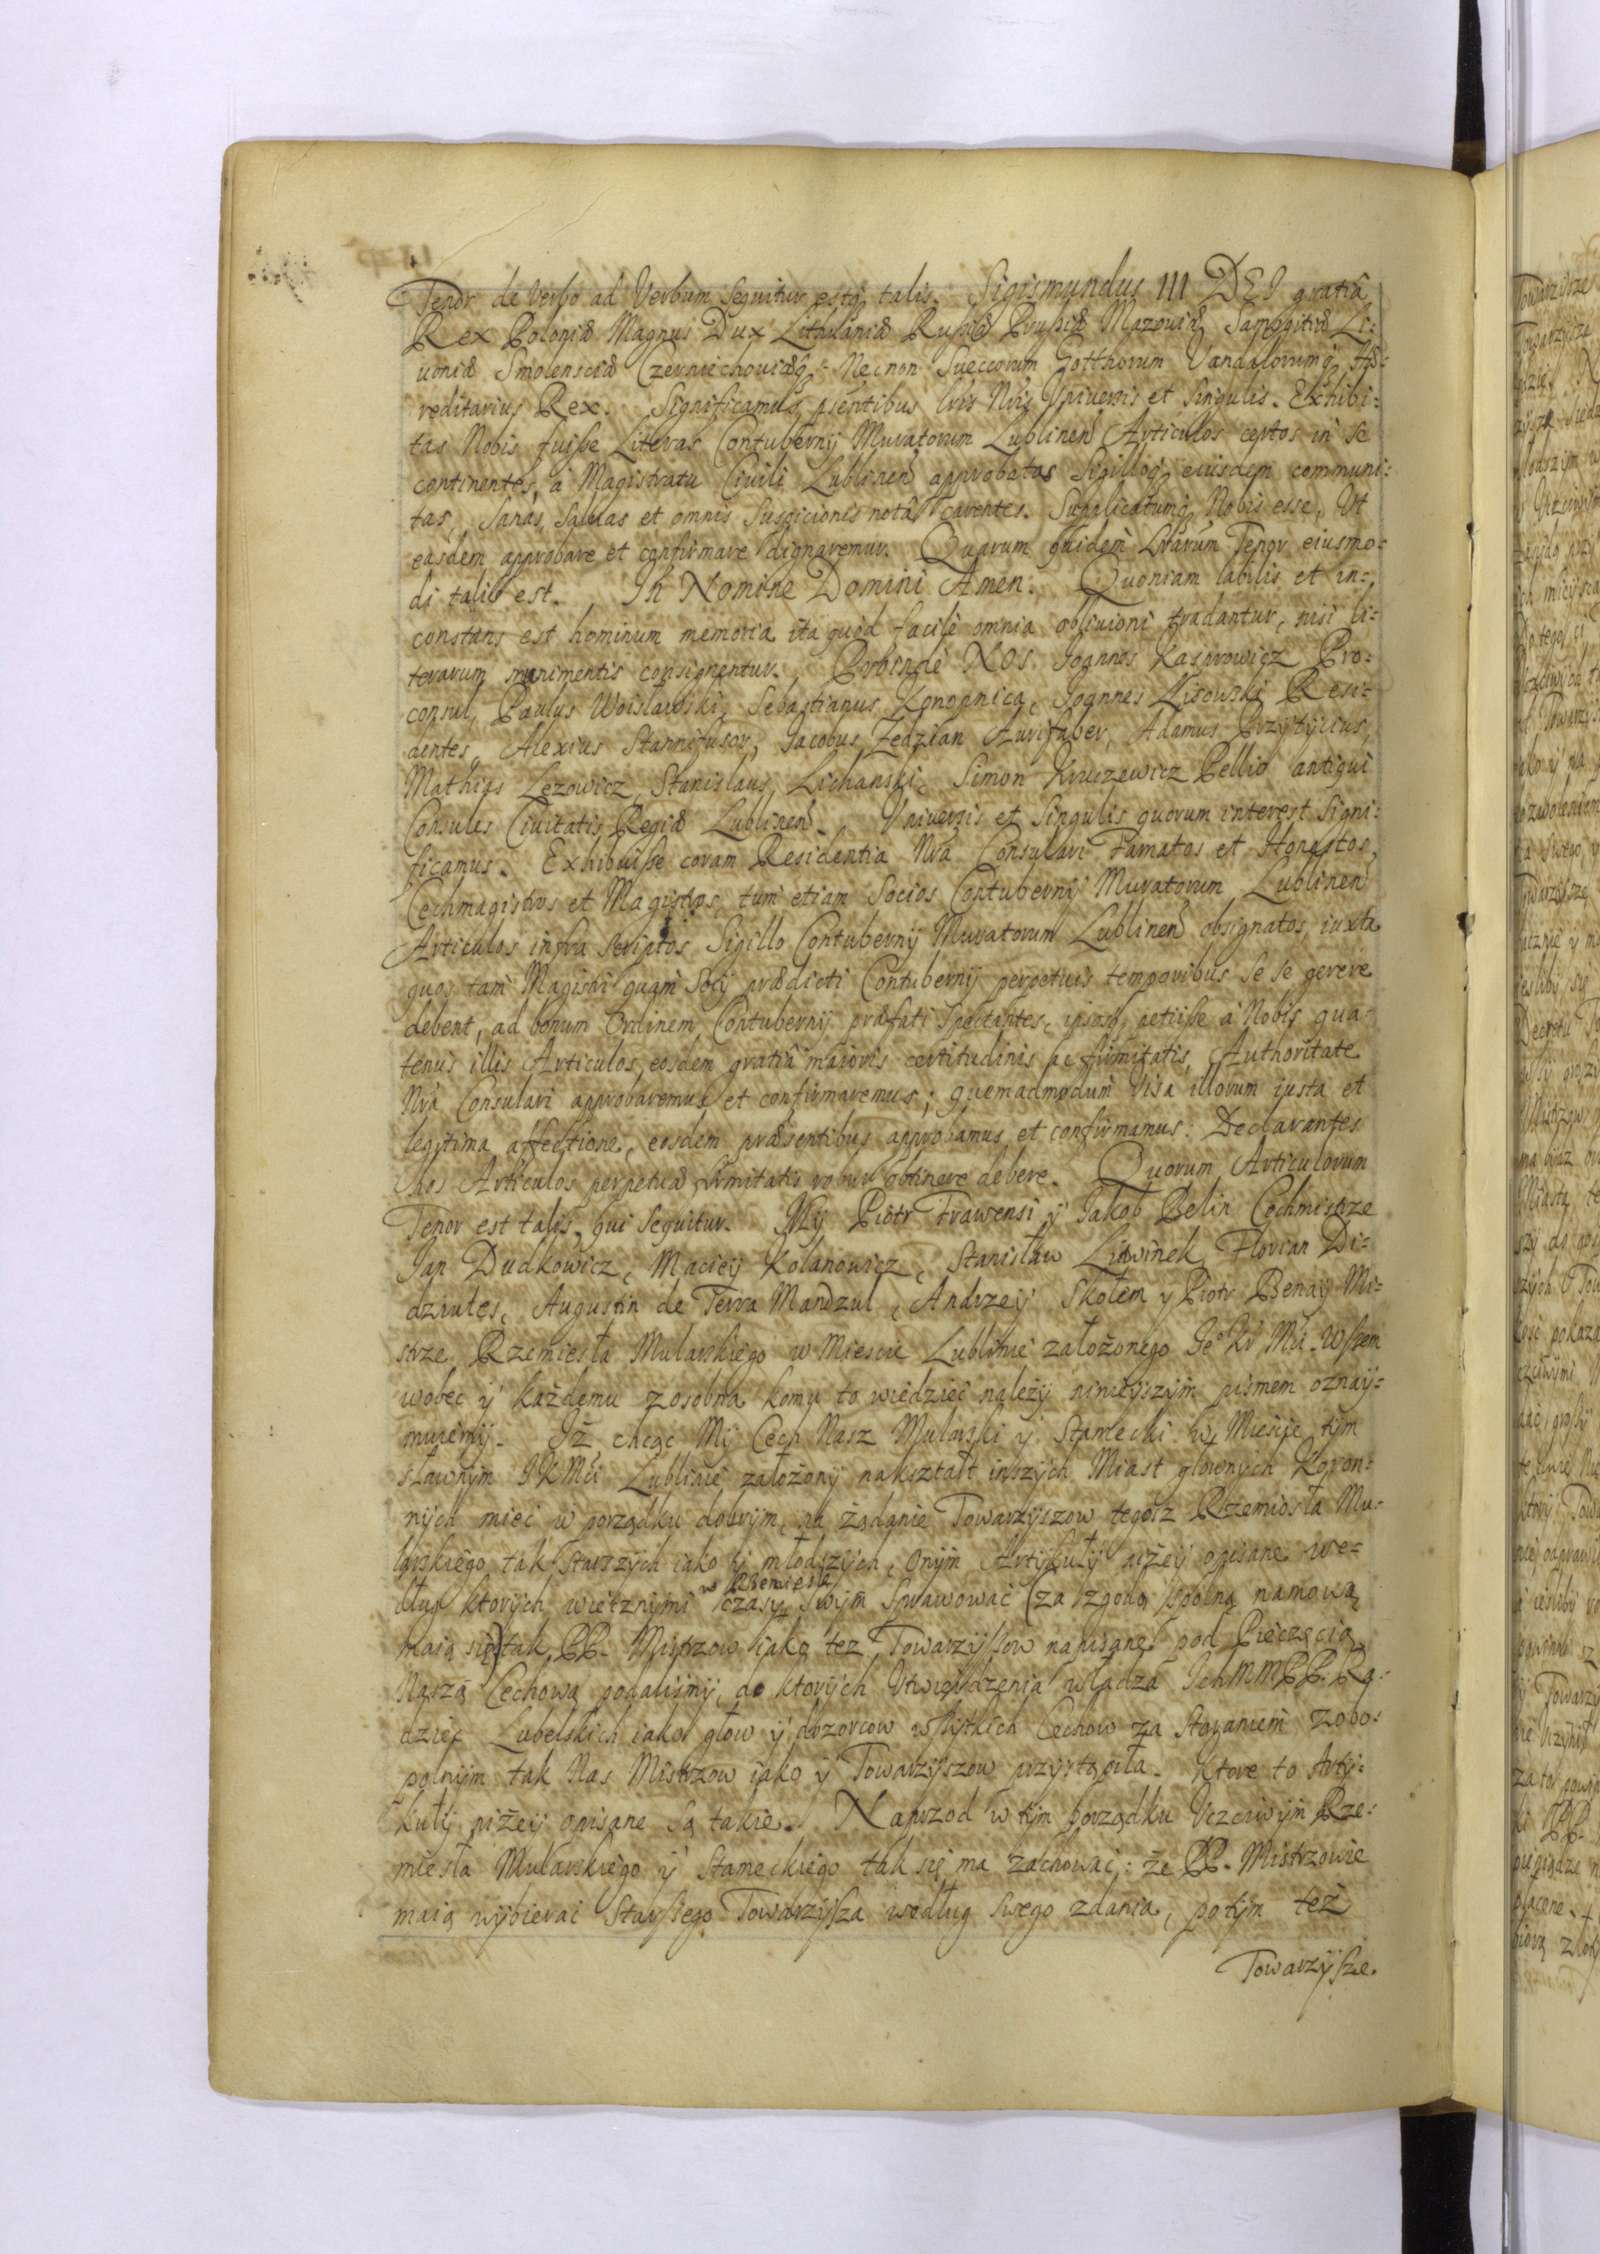 Tenor de Verbo ad Verbum Sequitur estq; talis. Sigismundus III DEI gratiâ
Rex Poloniæ Magnus Dux Lithuaniæ Rußiæ Prußiæ Mazouiæ, Samogitiæ Li-
uoniæ Smolensciæ Czerniechouiæq; Necnon Sueccorum Gotthorum Vandalorumq; Hæ-
reditarius Rex. Significamus pñtibus lris Nris Vniuersis et Singulis. Exhibi-
tas Nobis fuiße Literas Contubernij Muratorum Lublinen Articulos certos in se
continentes, à Magistratu Ciuili Lublinen approbatas Sigilloq; eiusdem communi-
tas, Sanas, Saluas et omnis Suspicionis notâ carentes. Supplicatumq; Nobis esse, Vt
easdem approbare et confirmare dignaremur. Quarum quidem Lrarum Tenor eiusmo-
di talis est. In Nomine Domini Amen. Quoniam labilis et in-
constans est hominum memoria ita quòd facilè omnia obliuioni tradantur, nisi li-
terarum munimentis consignentur. Proindè NOS Joannes Kasprowicz Pro-
consul, Paulus Woisławski, Sebastianus Konopnica, Joannes Lisowski Resi-
dentes, Alexius Stannifusor, Jacobus Zedzian Aurifaber, Adamus Przytycius,
Mathias Lezowicz, Stanislaus Lichanski, Simon Kruczewicz Pellio antiqui
Consules Ciuitatis Regiæ Lublinen. Vniuersis et Singulis quorum interest Signi-
ficamus. Exhibuiße coram Residentia Nrâ Consulari Famatos et Honestos,
Cechmagistros et Magistros, tùm etiam Socios Contubernij Muratorum Lublinen
Articulos infra Scriptos Sigillo Contubernij Muratorum Lublinen obsignatos, iuxta
quos tam Magistri quàm Socij prædicti Contubernij perpetuis temporibus Se se gerere
debent, ad bonum Ordinem Contubernij præfati Spectantes, ipsosq; petiiße à Nobis qua-
tenus illis Articulos, eosdem gratiâ maioris certitudinis ac firmitatis, Authoritate
Nrâ Consulari approbaremus et confirmaremus; quemadmodum Visa illorum iusta et
legitima affectione, eosdem præsentibus approbamus et confirmamus: Declarantes
hos Articulos perpetuæ firmitatis robur obtinere debere. Quorum Articulorum
Tenor est talis, qui Sequitur. My Piotr Trawensi y Jakob Belin Cechmistrze
Jan Dudkowicz, Maciey Kolanowicz, Stanisław Litwinek, Florian Di-
dziułes, Augustin de Terra Mandzul, Andrzey Skotem y Piotr Benay Mi-
strze Rzemiesła Mularskiego w Miescie Lublinie założonego Je° Kr Mci. Wßem
wobec y każdemu zosobna komu to wiedzieć należy ninieyszym pismem oznay-
muiemy. Iż chcąc My Cech Nasz Mularski y Stamecki w Miescie tym
sławnym JKMci Lublinie założony nakształt inszych Miast głównych Koron-
nych mieć w porządku dobrym, na żądanie Towarzyszow tegosz Rzemiosła Mu-
larskiego tak Starszych iako y młodszych, Onym Artykuły niżey opisane we-
dług ktorych wiecznymi czasy w Rzemieśle Swym Sprawować (za zgodą spolną namową
maią się) tak PP. Mistrzow iako też Towarzyßow napisane pod Pieczęcią
Naszą Cechową podaliśmy, do ktorych Vtwierdzenia władza Ich MM PP. Ra-
dziec Lubelskich iako głow y dozorcow wßytkich Cechow za Staraniem zobo-
polnym tak Nas Mistrzow iako y Towarzyszow przystąpiła. Ktore to Arty-
kuły niżey opisane Są takie. Naprzod w tym porządku Vczciwym Rze-
miesła Mularskiego y Stameckiego tak się ma zachować: że PP. Mistrzowie
maią wybierać Starßego Towarzyßa według swego zdania, potym też
Towarzyßze.